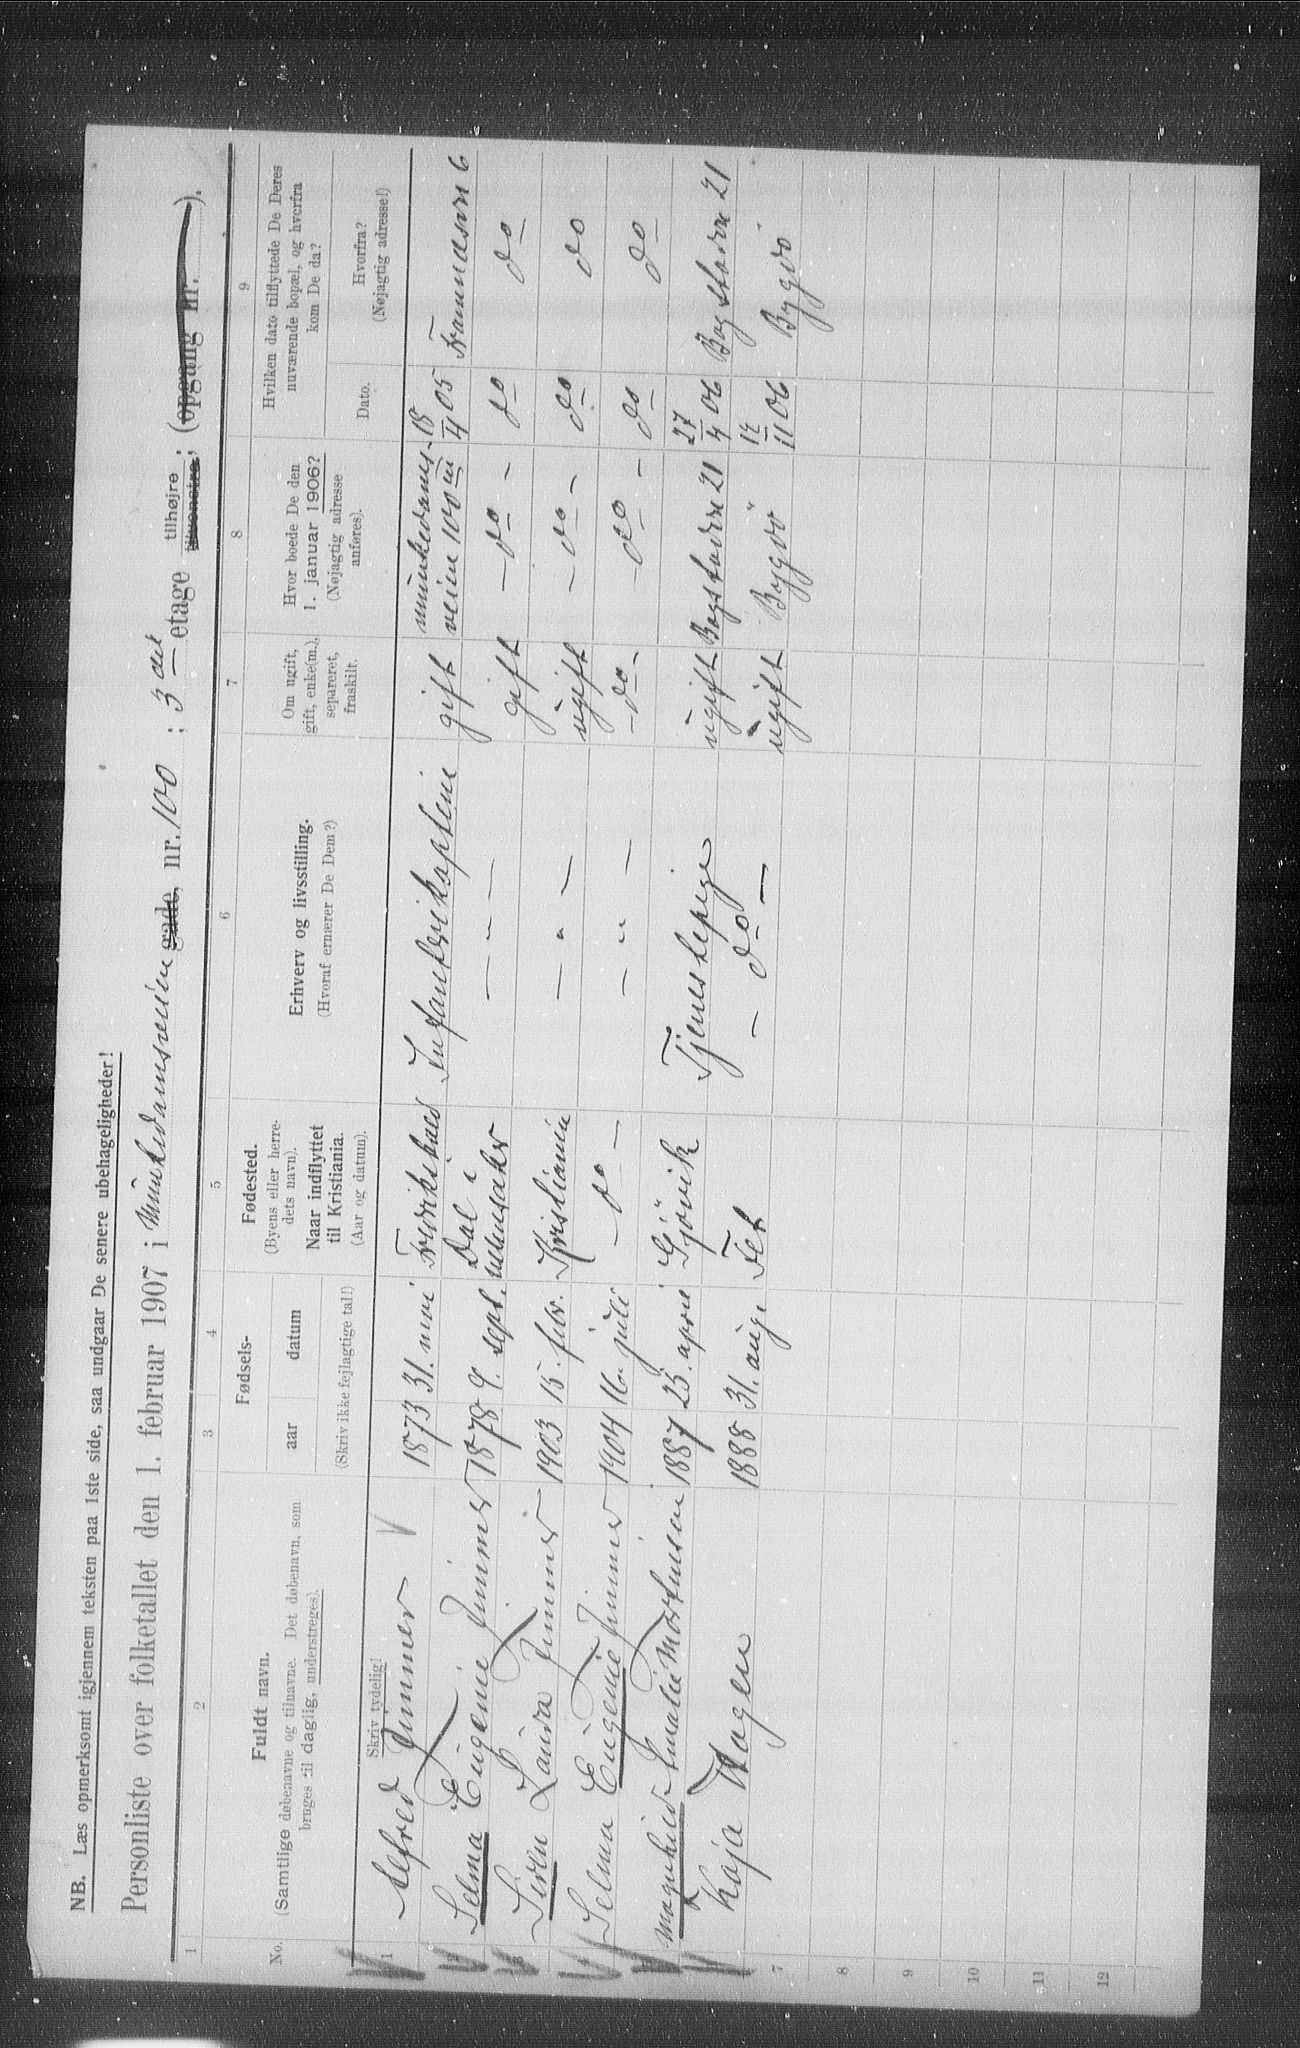 NB. Læs opmerksomt igjennem teksten paa 1ste side, saa undgaar De senere ubehageligheder!
Personliste over folketallet den 1. februar 1907 i Munkedamsveien gade, nr. 100 ; 3 die etage tilhøjre tilvenstre; (opgang nr. ).
1 2 3 4 5 6 7 8 9
No. Fuldt navn. (Samtlige døbenavne og tilnavne. Det døbenavn, som bruges til daglig, understreges). Skriv tydelig!
Fødsels- aar datum (Skriv ikke fejlagtige tal!)
Fødested. (Byens eller herredets navn). Naar indflyttet til Kristiania. (Aar og datum).
Erhverv og livsstilling. (Hvoraf ernærer De Dem?)
Om ugift, gift, enke(m.), separeret, fraskilt.
Hvor boede De den 1. januar 1906? (Nøjagtig adresse anføres).
Hvilken dato tilflyttede De Deres nuværende bopæl, og hvorfra kom De da?
Dato. Hvorfra? (Nøjagtig adresse!)
1 Alfred Zimmer 1873 31. mai Fredrikshald Infanterikaptein gift munkedamsveien 100 III 18/4 05 Framnæsvn 6
Selma Eugenie Zimmer 1878 9. sept. Dal i Ullensaker — " — gift — do — do do
Siren Laura Zimmer 1903 15. febr. Kristiania — " — ugift — do — do do
Selma Eugenie Zimmer 1904 16 juli — do — — " — - do - - do - do do
Magnhild Amalie Mortinsen 1887 25. april Gjøvik Tjenestepige ugift Bogstadvn 21 27/4 06 Bogstadvn 21
Kaja Hagen 1888 31. aug. Fet — do — ugift Bygdø 12/11 06 Bygdø
7
8
9
10
11
12